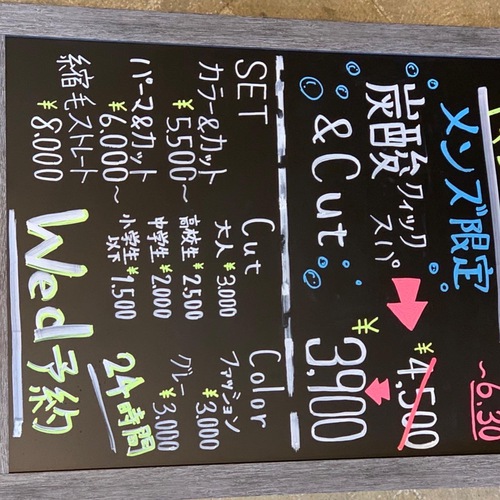 ~6.30
メンズ限定
炭酸クイックスパ
&Cut
¥4,500
¥3,900
SET
カラー&カット
¥5,500~
パーマ&カット
¥6,000~
縮毛ストレート
¥8,000
Cut
大人 ¥3,000
高校生 ¥2,500
中学生 ¥2,000
小学生以下 ¥1,500
Color
ファッション
¥3,000
グレー
¥3,000
Wed予約
24時間